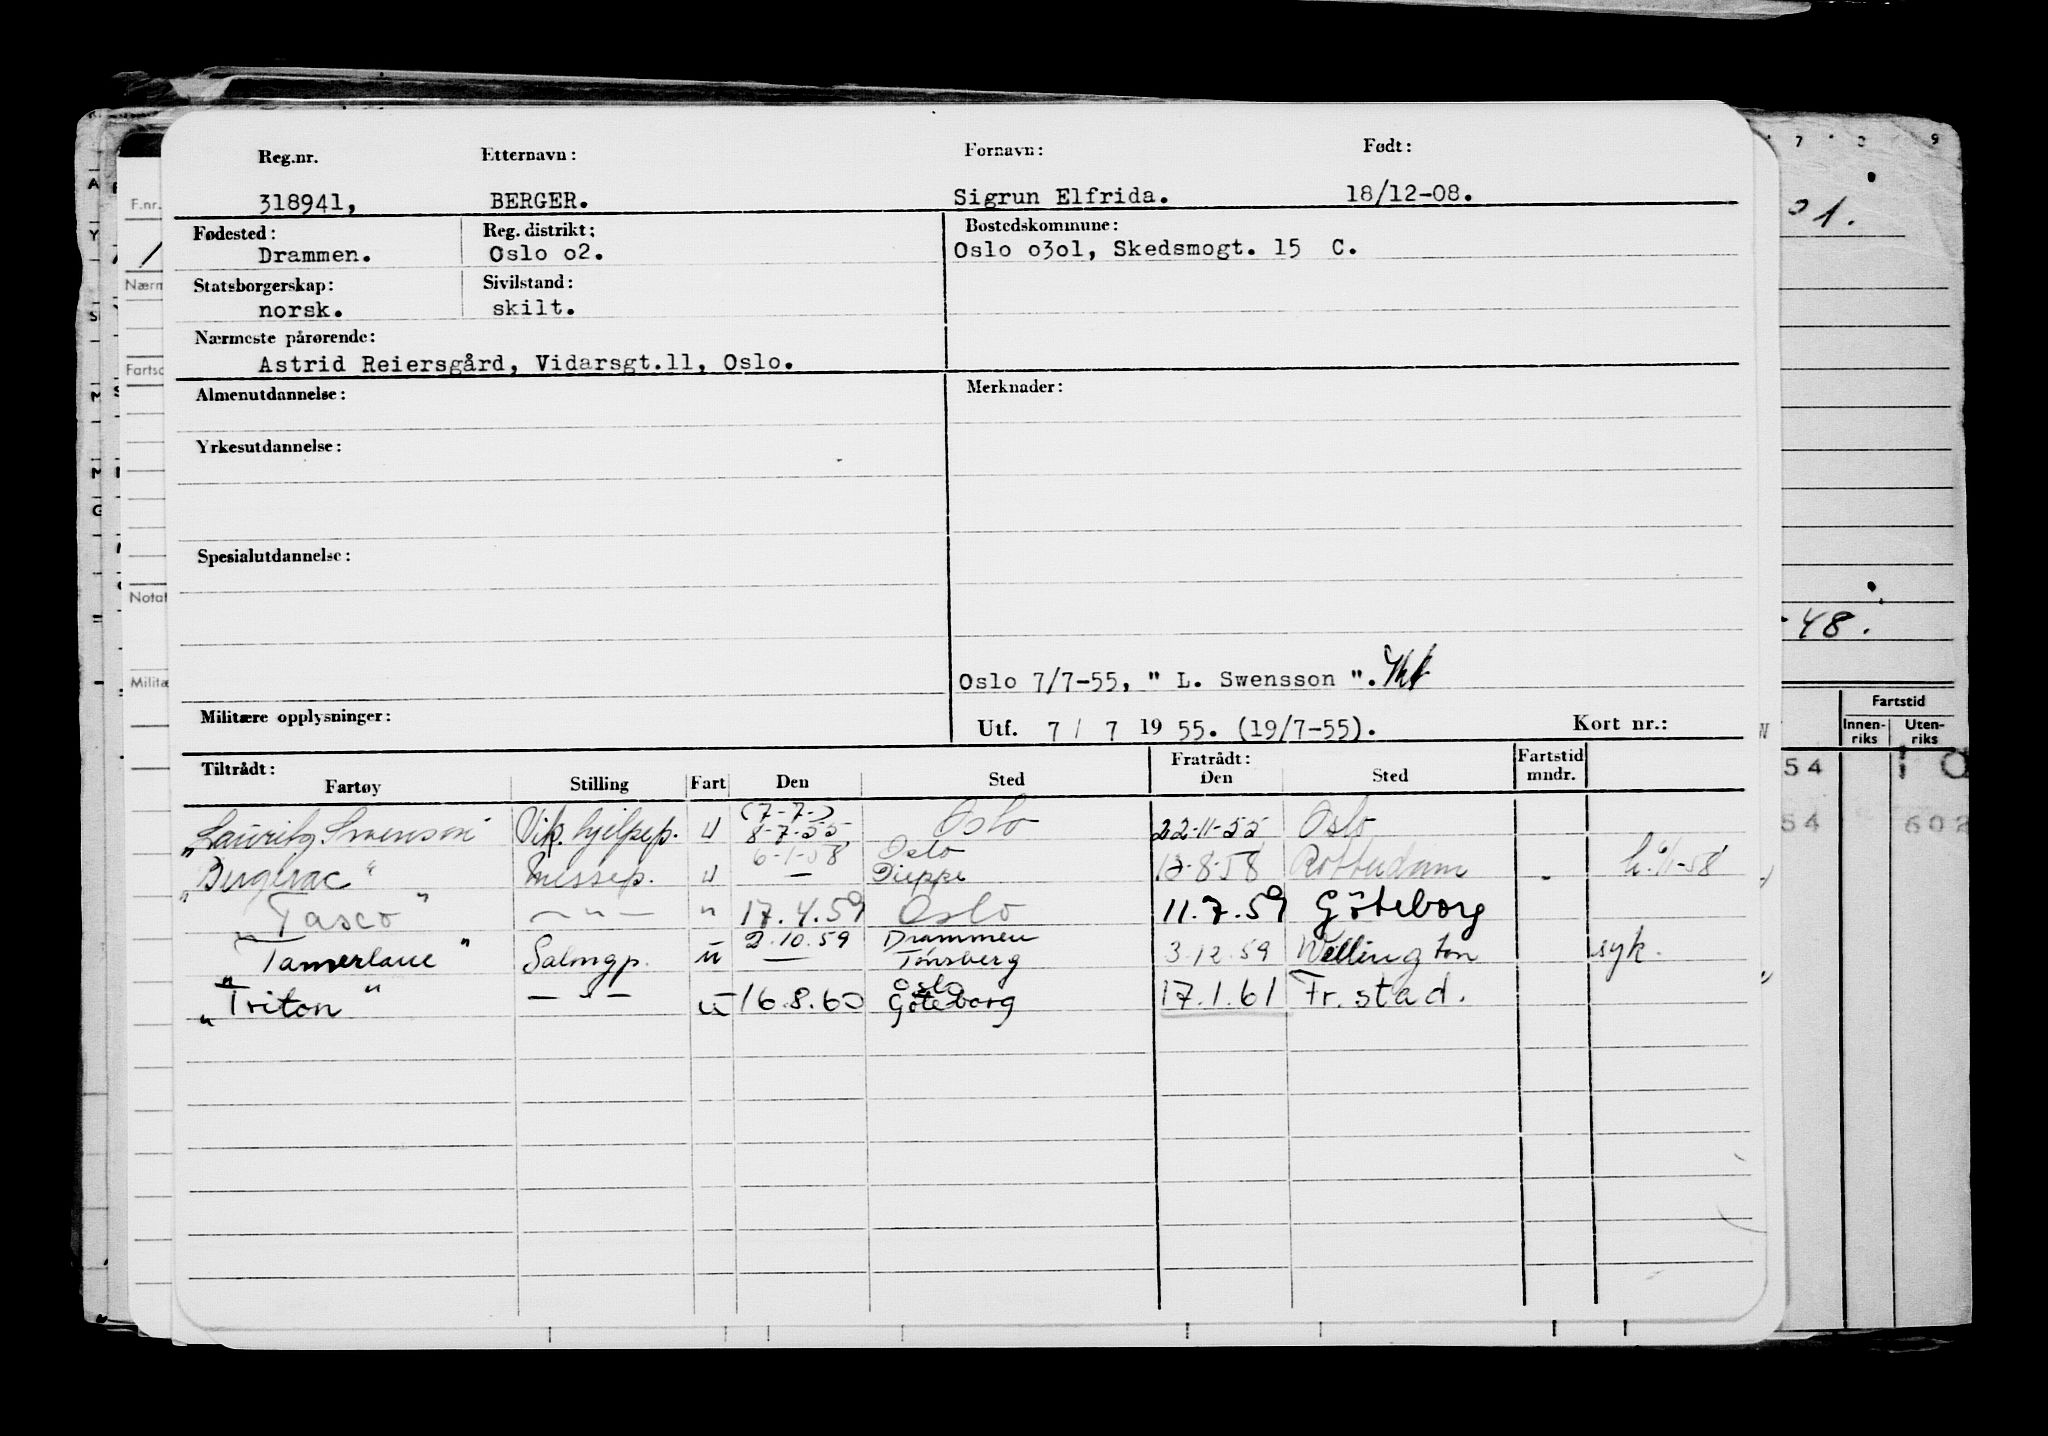 Reg.nr. Etternavn: Fornavn: Født:
318941, BERGER. Sigrun Elfrida. 18/12-08.
Fødested: Reg. distrikt: Bostedskommune:
Drammen. Oslo o2. Oslo o3o1, Skedsmogt. 15 C.
Statsborgerskap: Sivilstand:
norsk. skilt.
Nærmeste pårørende:
Astrid Reiersgård, Vidarsgt.11, Oslo.
Almenutdannelse: Merknader:
Yrkesutdannelse:
Spesialutdannelse:
Oslo 7/7-55, " L. Swensson ".
Militære opplysninger: Utf. 7 / 7 19 55. (19/7-55). Kort nr.:
Tiltrådt: Fratrådt: Fartstid
Fartøy Stilling Fart Den Sted Den Sted mndr.
(7-7-)
"Lauritz Swenson" Vik. hjelpep. u 8-7-55 Oslo 22-11-55 Oslo
6-1-58 Oslo
"Bergerac" Messep. u — Dieppe 13-8-58 Rotterdam
"Tasco" — " — " 17.4.59 Oslo 11.7.59 Göteborg
2.10.59 Drammen
"Tamerlane" Salongp. u — Tønsberg 3.12.59 Wellington syk.
Oslo
"Triton" — " — u 16.8.60 Göteborg 17.1.61 Fr.stad.
F.nr.
Nærm
Fartsd
Notat
Militæ
7 9
-48.
Fartstid
Innen-riks Uten-riks
54
54 602